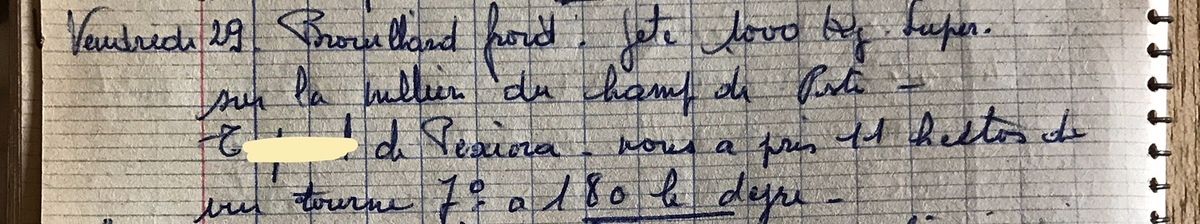 Vendredi 29. Brouillard froid. Jete 1000 Kg. Super.
sur la du champ de Piste -
de Pexiora - nous a pris 11 hectos de
vin tourne 7° a 180 le degre -